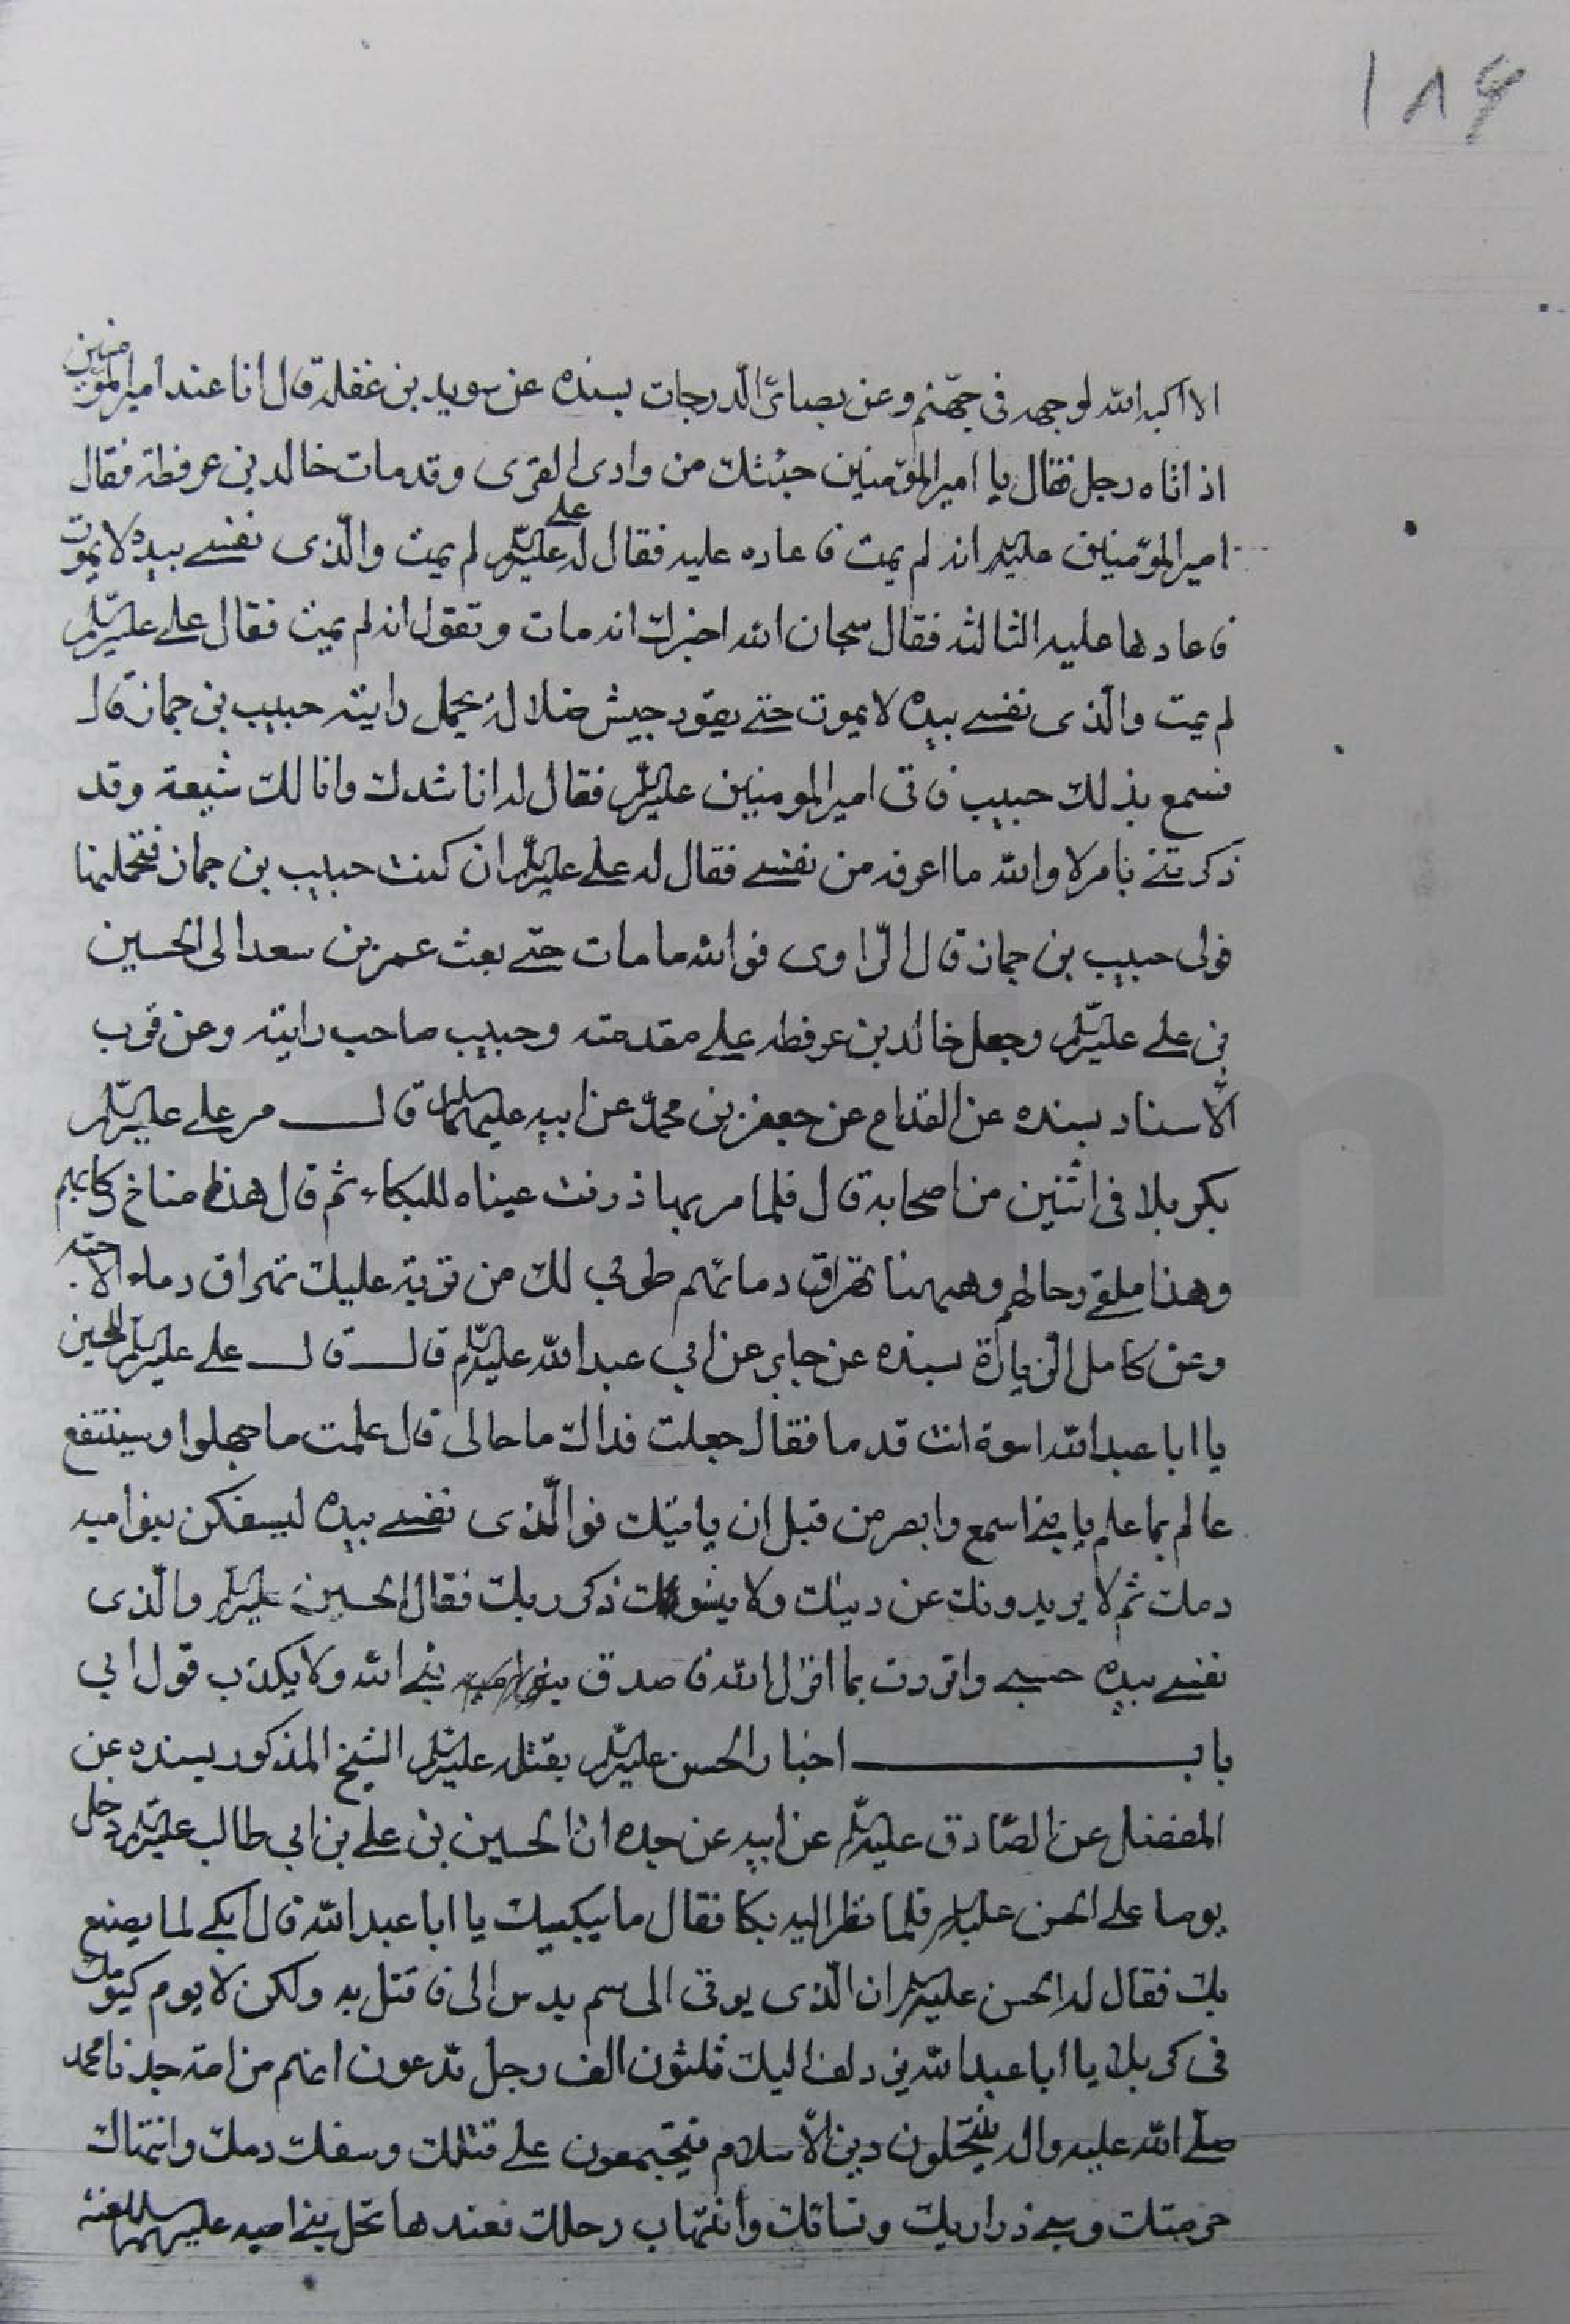 ۱۸۶
الا اكبه الله لوجهه فى جهنم وعن بصائر الدرجات بسنده عن سويد بن غفله قال انا عند امير المؤمنين
اذ اتاه رجل فقال يا امير المؤمنين جئتك من وادى القرى وقد مات خالد بن عرفطة فقال
امير المؤمنين عليه السلم انه لم يمت فاعاده عليه فقال له على عليه السلم لم يمت والذى نفسى بيده لا يموت
فاعادها عليه الثالثه فقال سبحان الله اخبرك انه مات وتقول انه لم يمت فقال على عليه السلم
لم يمت والذى نفسى بيده لا يموت حتى يقود جيش ضلالة يحمل رايته حبيب بن جماز قال
فسمع بذلك حبيب فاتى امير المومنين عليه السلم فقال له اناشدك وانا لك شيعة وقد
ذكرتنى بامر لا والله ما اعرفه من نفسى فقال له على عليه السلم ان كنت حبيب بن جماز فتحملنها
فولى حبيب بن جماز قال الراوى فوالله ما مات حتى بعث عمر بن سعد الى الحسين
بن على عليه السلم وجعل خالد بن عرفطه على مقدمته وحبيب صاحب رايته وعن قرب
الاسناد بسنده عن القداح عن جعفر بن محمد عن ابيه عليهما السلم قال مر على عليه السلم
بكربلا فى اثنين من اصحابه قال فلما مر بها ذرفت عيناه للبكاء ثم قال هذا مناخ ركابهم
وهذا ملقى رحالهم وههنا تهراق دمائهم طوبى لك من تربة عليك تهراق دماء الاحبه
وعن كامل الزيارة بسنده عن جابر عن ابى عبد الله عليه السلم قال قال على عليه السلم للحسين
يا ابا عبد الله اسوة انت قدما فقال جعلت فداك ما حالى قال علمت ما جهلوا وسينتفع
عالم بما علم يا بنى اسمع وابصر من قبل ان ياتيك فوالذى نفسى بيده ليسفكن بنو اميه
دمك ثم لا يريدونك عن دينك ولا ينسونك ذكر ربك فقال الحسين عليه السلم والذى
نفسى بيده حسبى واقررت بما انزل الله فاصدق نبى الله ولا يكذب قول ابى
باب اخبار الحسن عليه السلم بقتله عليه السلم الشيخ المذكور بسنده عن
المفضل عن الصادق عليه السلم عن ابيه عن جده ان الحسين بن على بن ابى طالب عليه السلم دخل
يوما على الحسن عليه السلم فلما نظر اليه بكا فقال ما يبكيك يا ابا عبد الله قال ابكى لما يصنع
بك فقال له الحسن عليه السلم ان الذى يوتى الى سم يدس الى فاقتل به ولكن لا يوم كيومك
فى كربلا يا ابا عبد الله يزدلف اليك ثلثون الف رجل يدعون انهم من امة جدنا محمد
صلى الله عليه واله ينتحلون دين الاسلام فيجتمعون على قتلك وسفك دمك وانتهاك
حرمتك وسبى ذراريك ونسائك وانتهاب رحلك فعندها تحل ببنى اميه اللعنه